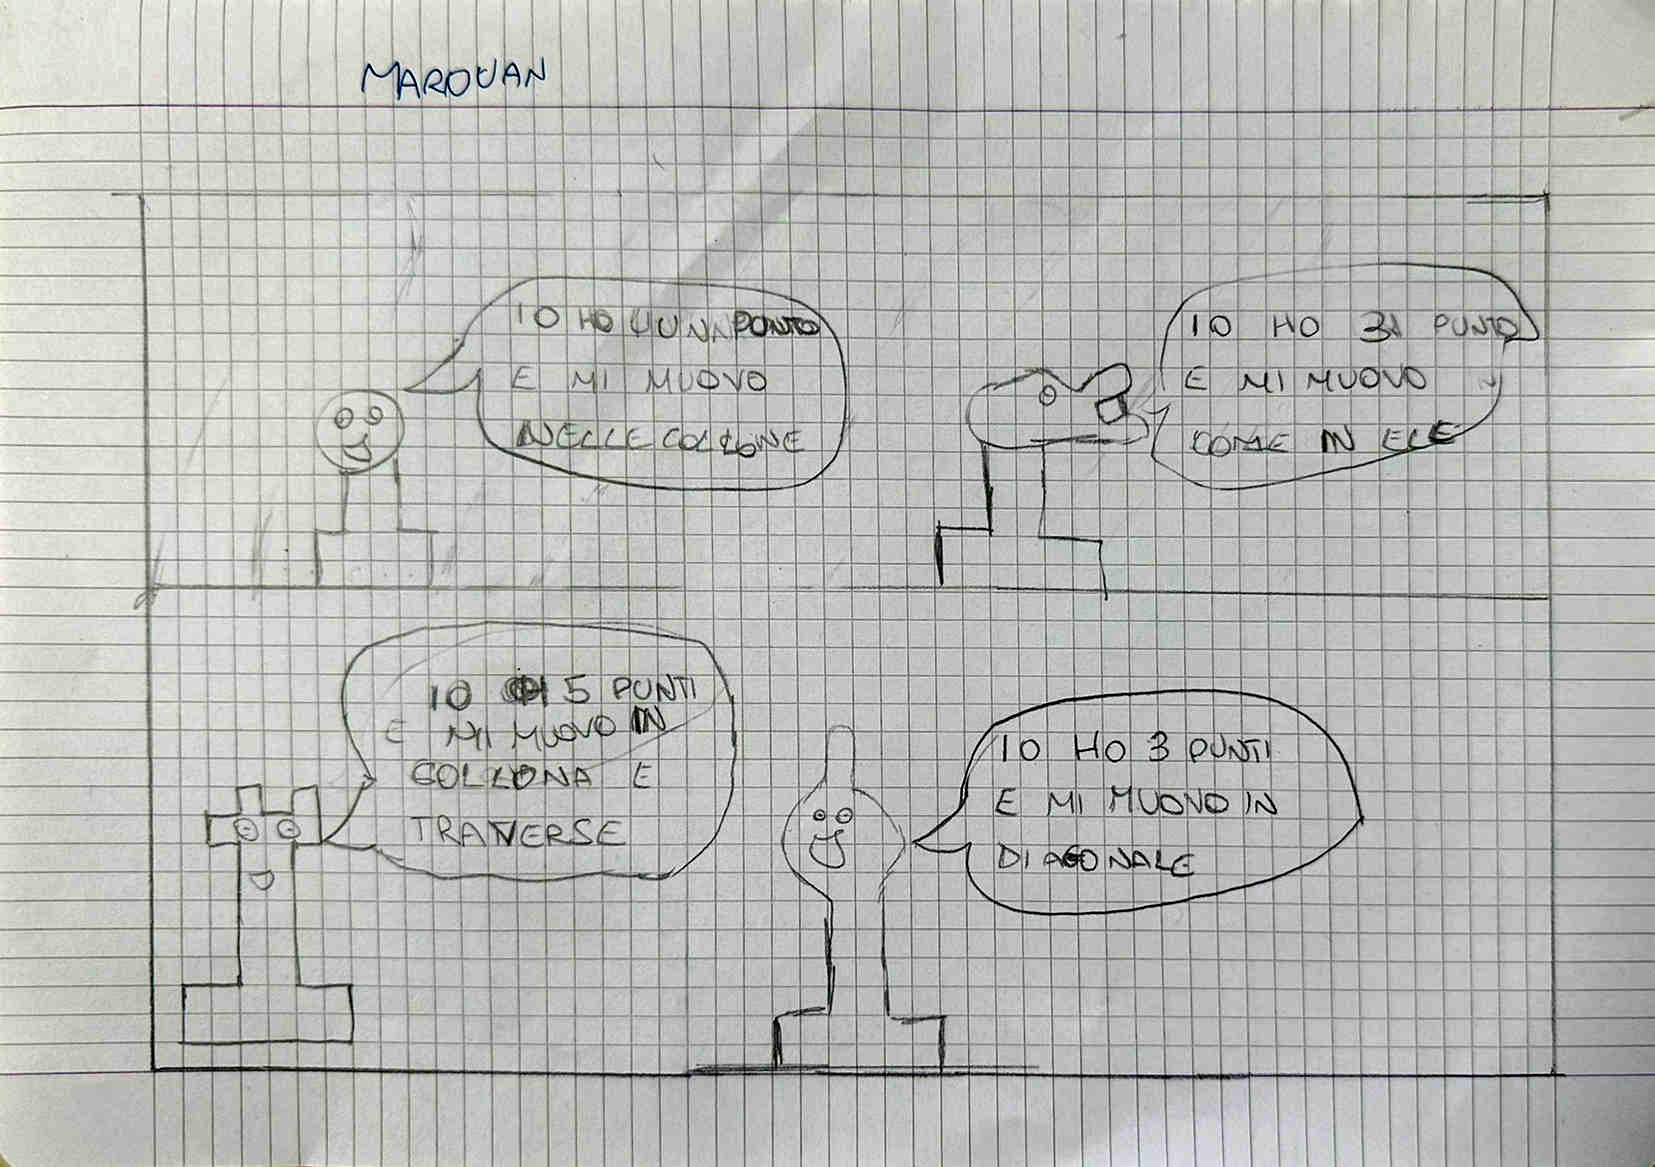 MAROUAN
IO HO UUN PUNTO
E MI MUOVO
NELLE COLLONE
IO HO 3 PUNTO
E MI MUOVO
COME IN ELE
IO 5 PUNTI
E MI MUOVO IN
COLLONA E
TRAVERSE
IO HO 3 PUNTI
E MI MUOVO IN
DIAGONALE